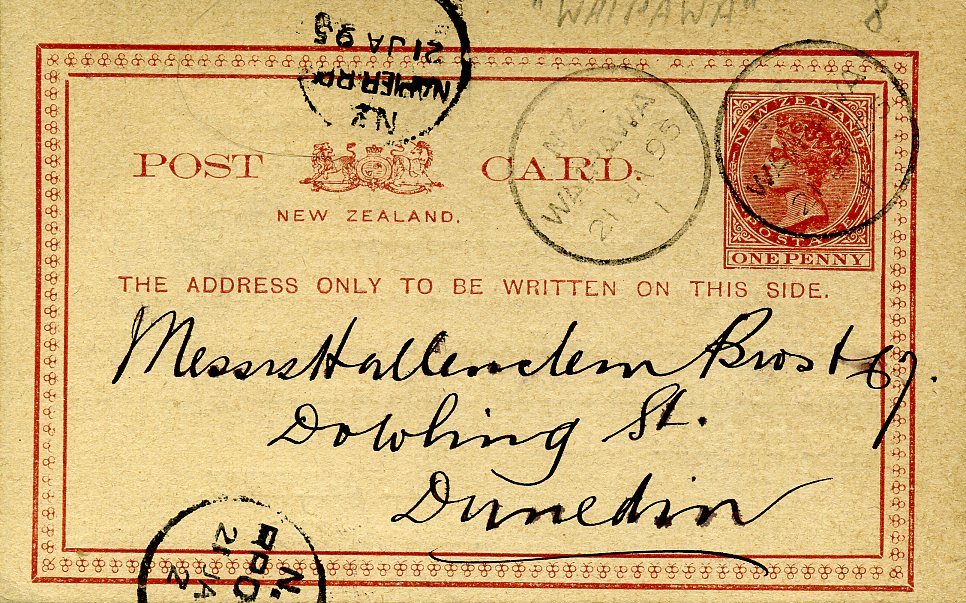 "WAIPAWA" 8
N.Z
NAPIER.R.P.O
21 JA 95
NEW ZEALAND
POSTAGE
ONE PENNY
N.Z
WAIPAWA
21 JA 95
1
WAIPAWA
2
POST CARD.
NEW ZEALAND.
THE ADDRESS ONLY TO BE WRITTEN ON THIS SIDE.
Messrs Hallenstein Bros & Co.
Dowling St.
Dunedin
N.
RPO
21 JA
2